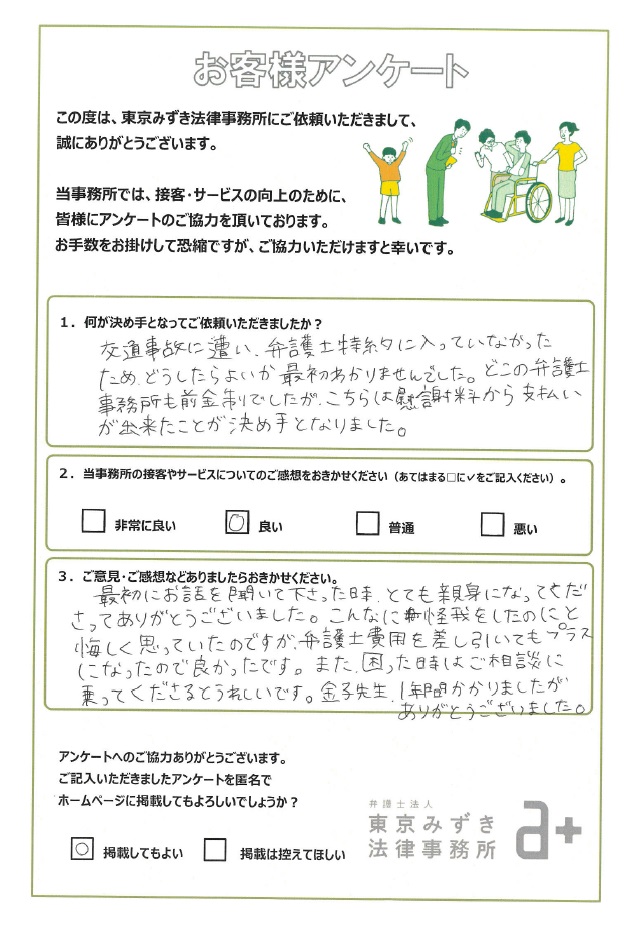 お客様アンケート
この度は、東京みずき法律事務所にご依頼いただきまして、
誠にありがとうございます。
当事務所では、接客・サービスの向上のために、
皆様にアンケートのご協力を頂いております。
お手数をお掛けして恐縮ですが、ご協力いただけますと幸いです。
1．何が決め手となってご依頼いただきましたか？
交通事故に遭い、弁護士特約に入っていなかった
ため、どうしたらよいか最初わかりませんでした。どこの弁護士
事務所も前金制でしたが、こちらは慰謝料から支払い
が出来たことが決め手となりました。
2．当事務所の接客やサービスについてのご感想をおきかせください（あてはまる□に✓をご記入ください）。
□ 非常に良い ○ 良い □ 普通 □ 悪い
3．ご意見・ご感想などありましたらおきかせください。
最初にお話を聞いて下さった時、とても親身になってくだ
さってありがとうございました。こんなに怪我をしたのにと
悔しく思っていたのですが、弁護士費用を差し引いてもプラス
になったので良かったです。また、困った時はご相談に
乗ってくださるとうれしいです。金子先生、1年間かかりましたが
ありがとうございました。
アンケートへのご協力ありがとうございます。
ご記入いただきましたアンケートを匿名で
ホームページに掲載してもよろしいでしょうか？
○ 掲載してもよい □ 掲載は控えてほしい
弁護士法人
東京みずき
法律事務所
a+